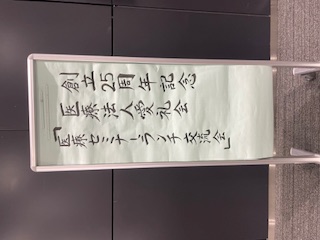 創立25周年記念
医療法人愛礼会
「医療セミナーランチ交流会」